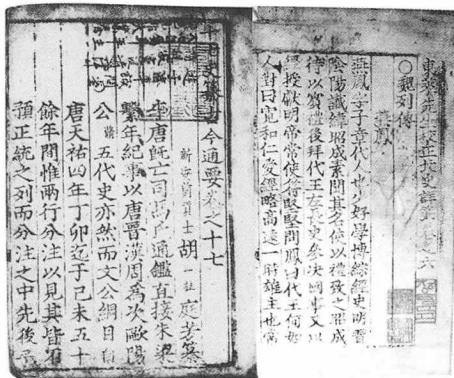 東萊先生校正北史詳節卷之六
○魏列傳
燕鳳
燕鳳字子章代人也少好學博綜經史明習
陰陽讖緯昭成素聞其名使以禮致之昭成
待以賓禮後拜代王左長史參決國事又以
經授獻明帝常使苻堅堅問鳳曰代王何如
人對曰寬和仁愛經略高遠一時雄主也常
十七史纂古今通要卷之十七
新安前貢士胡一桂庭芳纂
李唐旣亡司馬氏通鑑直接朱梁
繫年紀事以唐晉漢周爲次歐陽
公五代史亦然而文公綱目自
唐天祐四年丁卯迄于己未五十
餘年間惟兩行分注以見其皆不
預正統之列而分注之中先後予